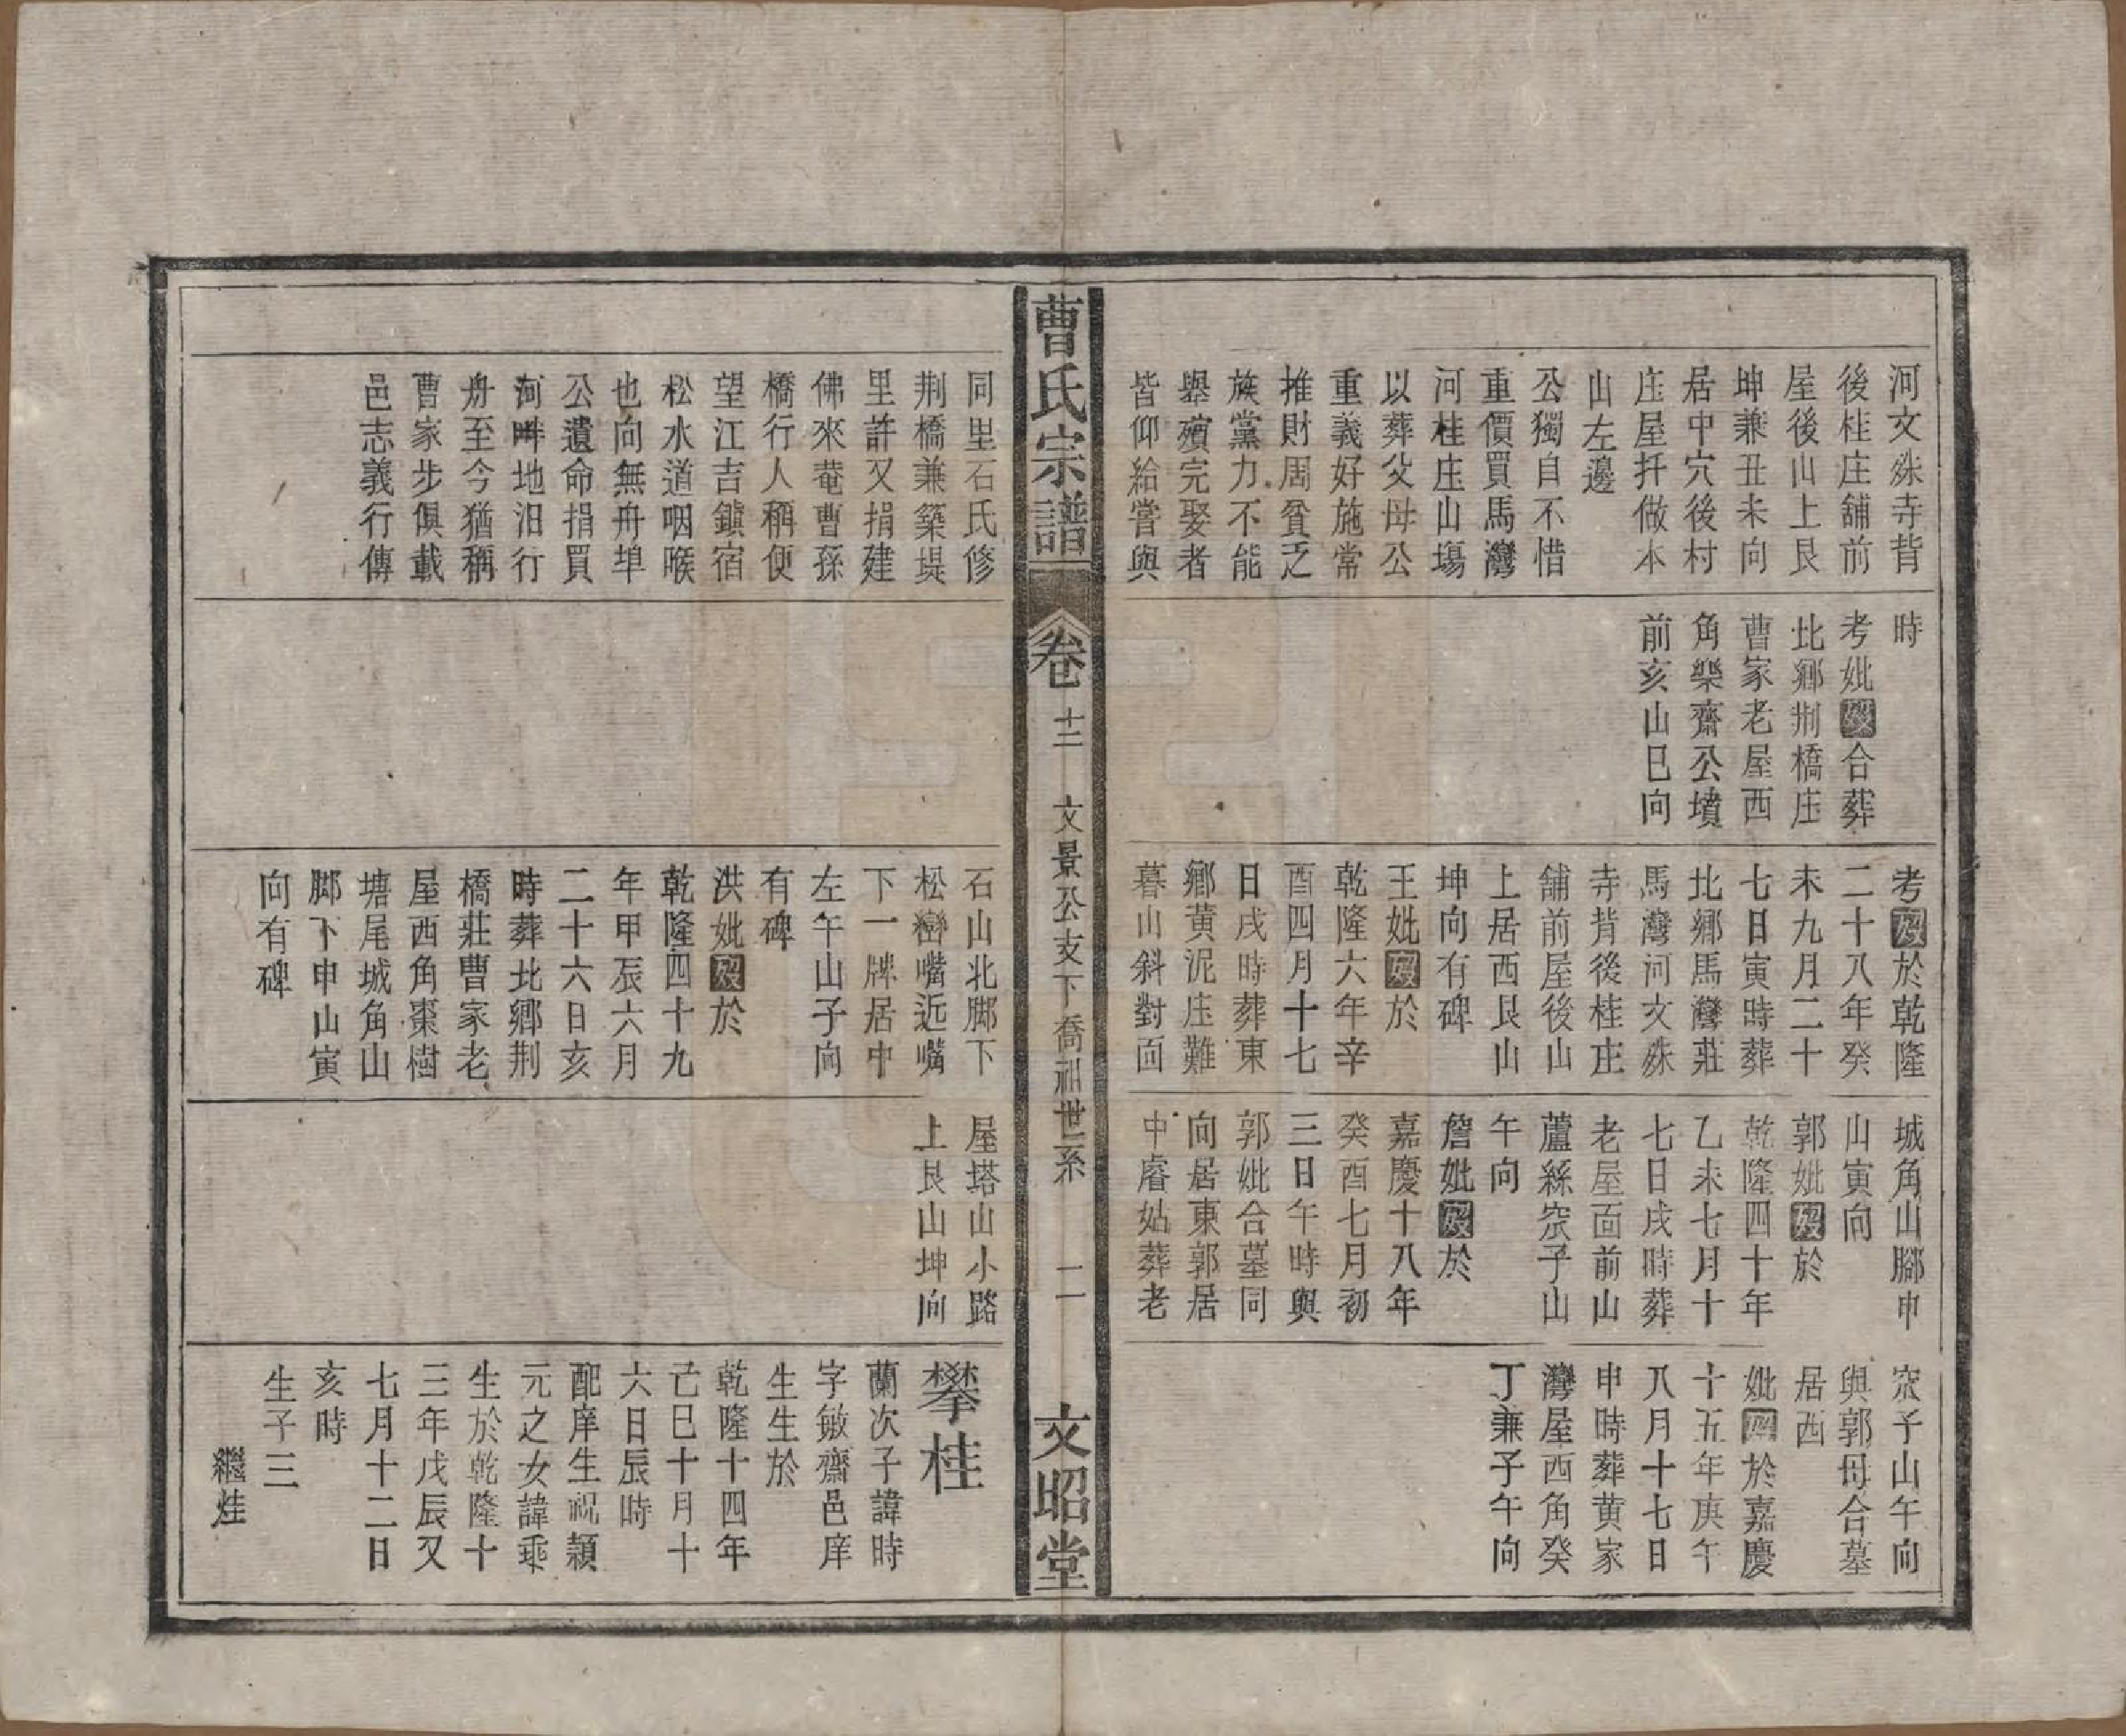 河文殊寺背
後桂庄舖前
屋後山上艮
坤兼丑未向
居中穴後村
庄屋扦做本
山左邊
公獨自不惜
重價買馬灣
河桂庄山塲
以葬父母公
重義好施常
推財周貧乏
族黨力不能
舉殯完娶者
皆仰給嘗與
時
考妣㱾合葬
北鄉荆橋庄
曹家老屋西
角樂齋公墳
前亥山巳向
考㱾於乾隆
二十八年癸
未九月二十
七日寅時葬
北鄉馬灣莊
馬灣河文殊
寺背後桂庄
舖前屋後山
上居西艮山
坤向有碑
王妣㱾於
乾隆六年辛
酉四月十七
日戌時葬東
鄉黄泥庄難
暮山斜對面
城角山腳申
山寅向
郭妣㱾於
乾隆四十年
乙未七月十
七日戌時葬
老屋面前山
蘆絲窊子山
午向
詹妣㱾於
嘉慶十八年
癸酉七月初
三日午時與
郭妣合墓同
向居東郭居
中睿姑葬老
窊子山午向
與郭母合墓
居西
妣㱾於嘉慶
十五年庚午
八月十七日
申時葬黄家
灣屋西角癸
丁兼子午向
曹氏宗譜
卷十二
文景公支下喬祖世系
二
文昭堂
同里石氏修
荆橋兼築堤
里許又捐建
佛來菴曹孫
橋行人稱便
望江吉鎮宿
松水道咽喉
也向無舟埠
公遺命捐買
河畔地泊行
舟至今猶稱
曹家步俱載
邑志義行傳
石山北脚下
松巒嘴近嘴
下一牌居中
左午山子向
有碑
洪妣㱾於
乾隆四十九
年甲辰六月
二十六日亥
時葬北鄉荆
橋莊曹家老
屋西角棗樹
塘尾城角山
脚下申山寅
向有碑
屋塔山小路
上艮山坤向
攀桂
蘭次子諱時
字敏齋邑庠
生生於
乾隆十四年
己巳十月十
六日辰時
配庠生祝顯
元之女諱乘
生於乾隆十
三年戊辰又
七月十二日
亥時
生子三
繼烓